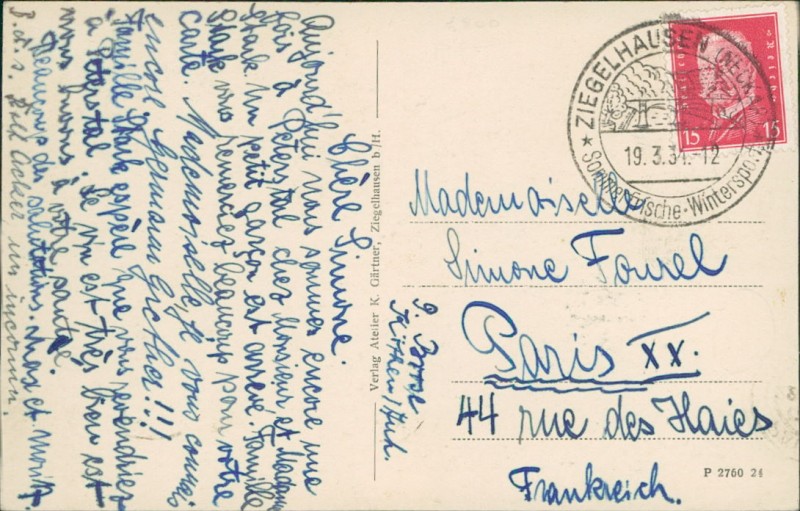 Chère Simone.
Aujourd'hui nous sommes encore une
fois à Peterstal chez Monsieur et Madame
Stark. Un petit garçon est arrivé. Famille
Stark vous remerciez beaucoup pour votre
carte. Mademoiselle, je vous connais
encore. Hermann
Famille Stark espère que vous reviendriez
à Peterstal. Le vin est très bien et
nous buvons à votre santé.
Beaucoup des salutations, Max et
P.d.s. Willi Acker un inconnu.
Verlag Atelier K. Gärtner, Ziegelhausen b/H.
ZIEGELHAUSEN (NECKAR)
19.3.31.-12
Sommerfrische-Wintersport
Deutsches Reich
15 15
Mademoiselle
Simone Fourel
Paris XX.
44 rue des Haies
Frankreich.
P 2760 24